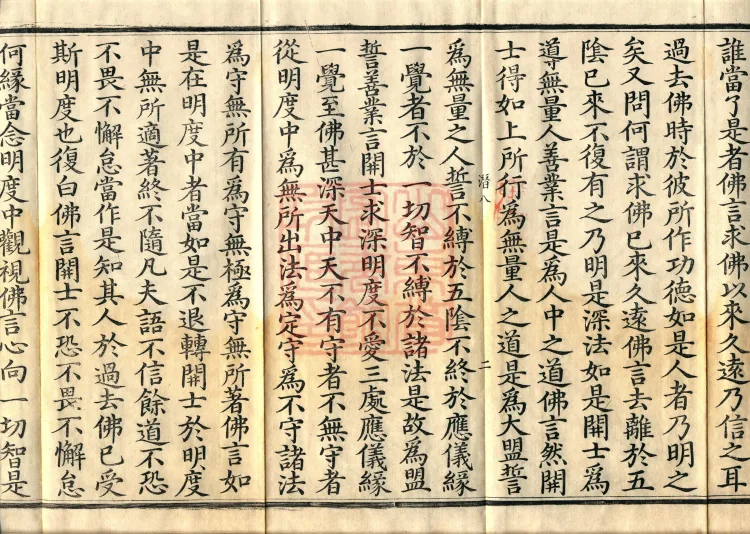 誰當了是者佛言求佛以來久遠乃信之耳
過去佛時於彼所作功德如是人者乃明之
矣又問何謂求佛已來久遠佛言去離於五
陰已來不復有之乃明是深法如是開士爲
導無量人善業言是爲人中之道佛言然開
士得如上所行爲無量人之道是爲大盟誓
潛八
二
爲無量之人誓不縛於五陰不終於應儀緣
一覺者不於一切智不縛於諸法是故爲盟
誓善業言開士求深明度不愛三處應儀緣
一覺至佛甚深天中天不有守者不無守者
從明度中爲無所出法爲定守爲不守諸法
爲守無所有爲守無極爲守無所著佛言如
是在明度中者當如是不退轉開士於明度
中無所適著終不隨凡夫語不信餘道不恐
不畏不懈怠當作是知其人於過去佛已受
斯明度也復白佛言開士不恐不畏不懈怠
何緣當念明度中觀視佛言心向一切智是